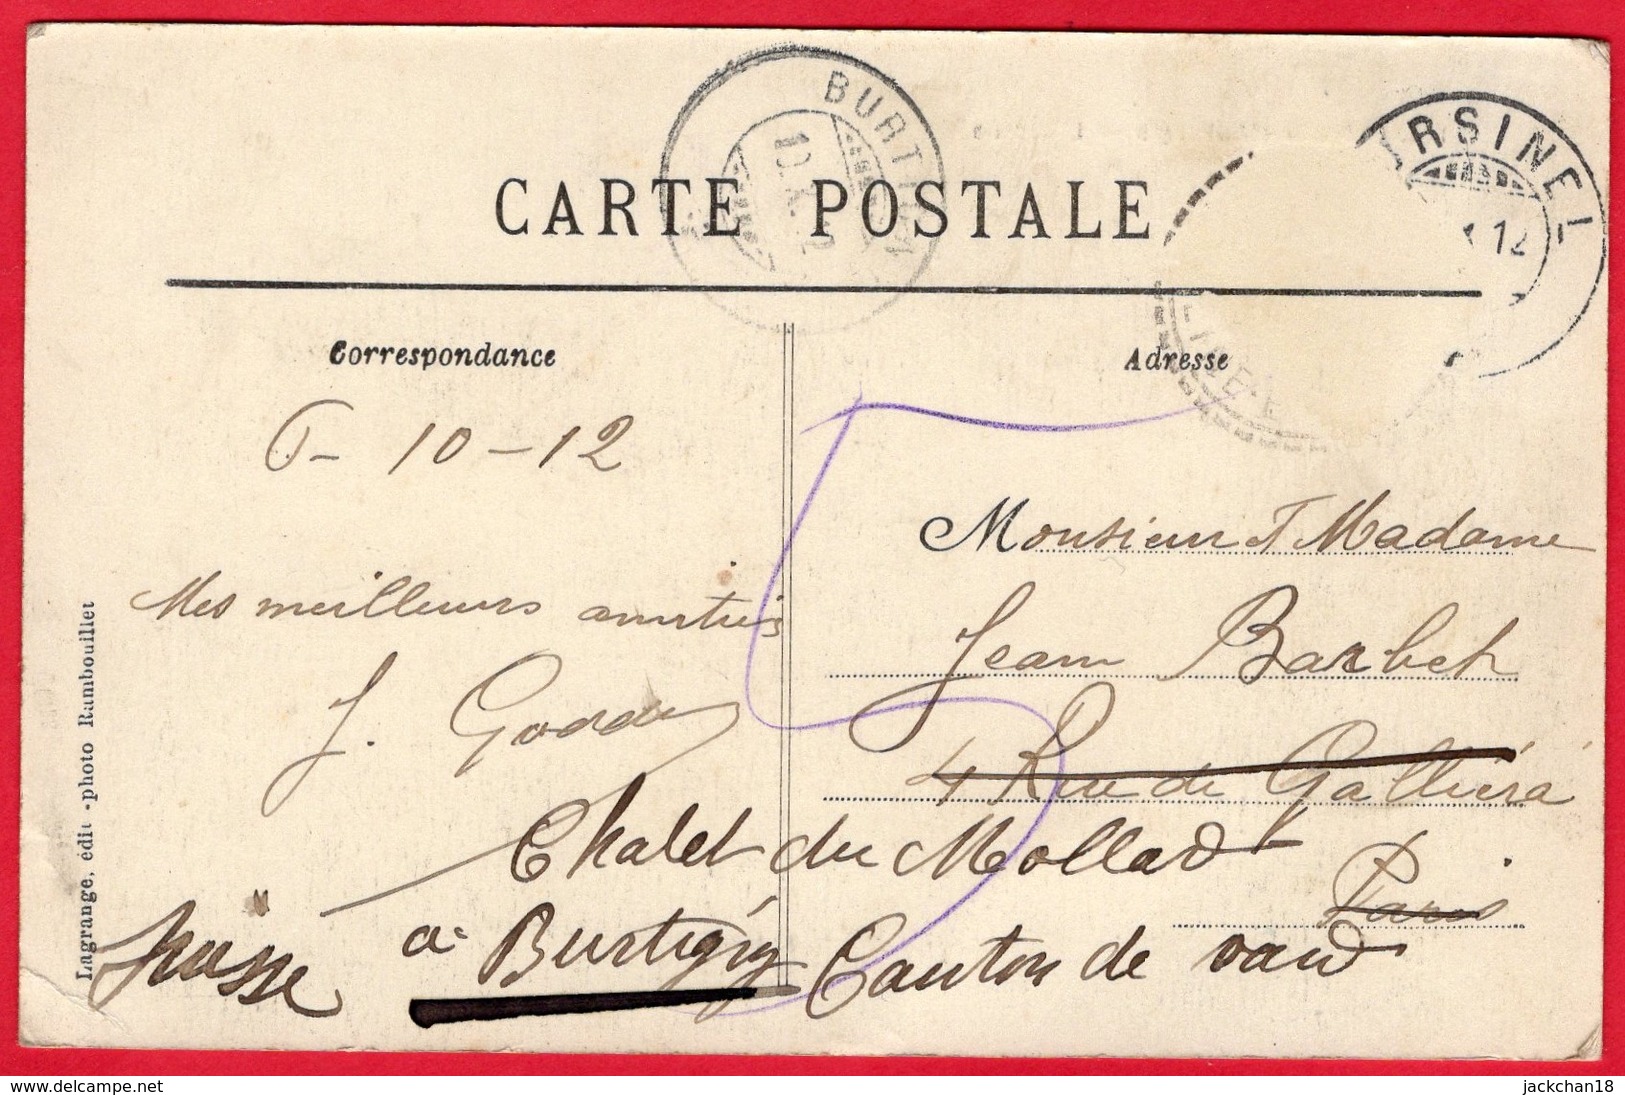 BURTIGNY
10.X.12
URSINEL
12
CARTE POSTALE
Correspondance
Adresse
6-10-12
Monsieur & Madame
Mes meilleurs amitiés
Jean Barbet
J.
4 Rue de Galliéra
Chalet du Mollard
Paris
Suisse
a Burtigny Canton de vaud
Lagrange, édit -photo Rambouillet
jackchan18